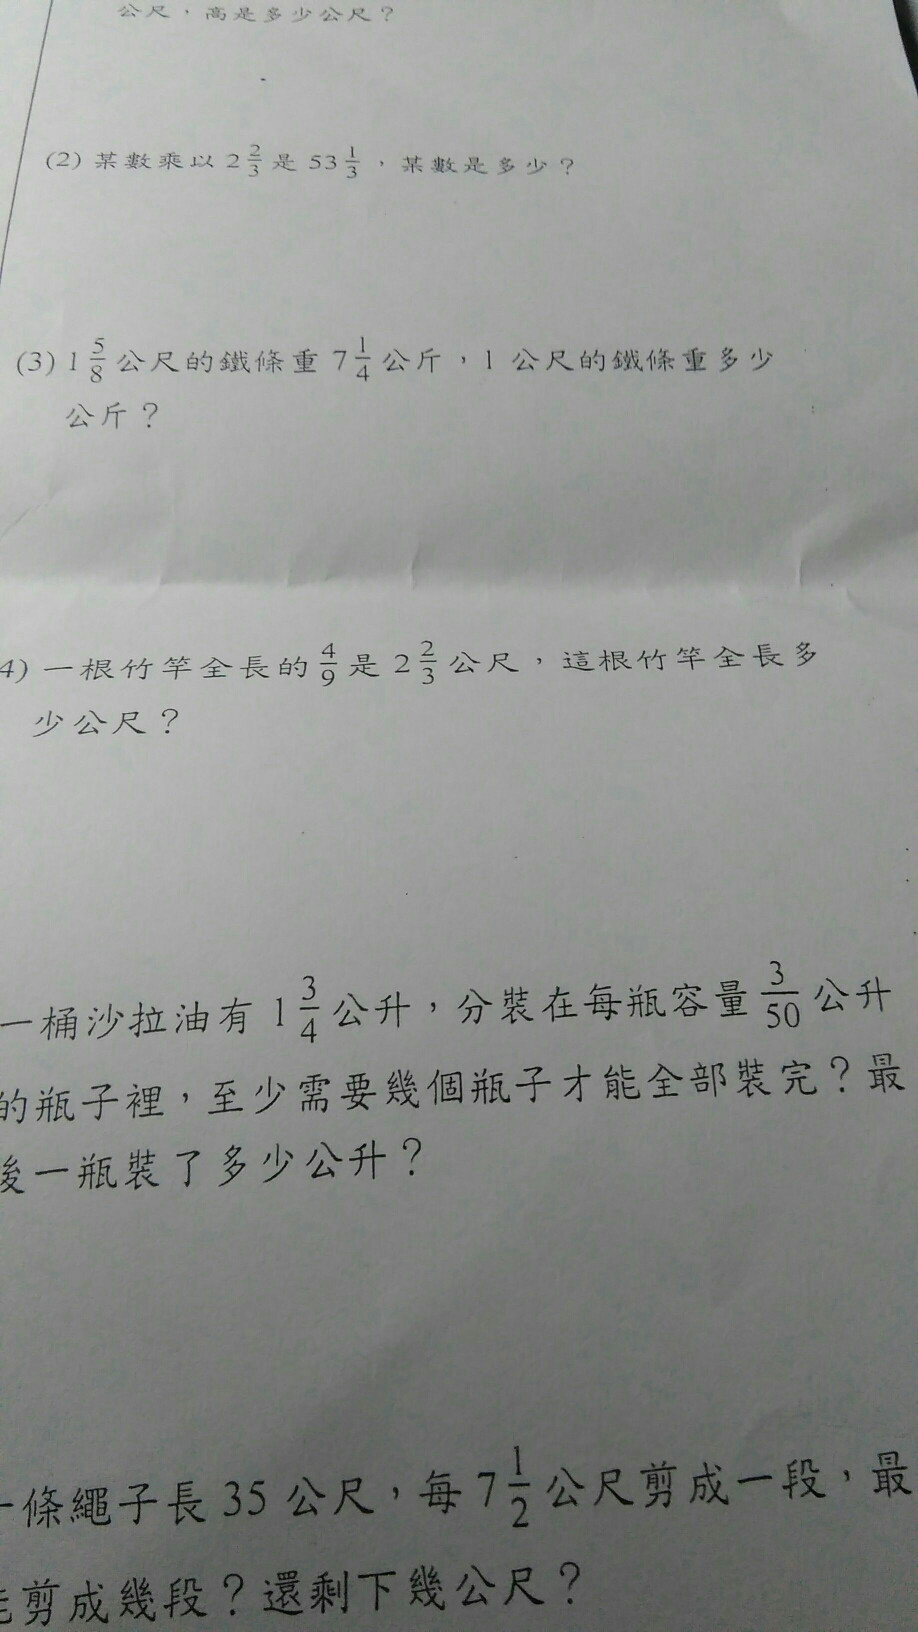 公尺，高是多少公尺？
(2) 某數乘以 2 2/3 是 53 1/3，某數是多少？
(3) 1 5/8 公尺的鐵條重 7 1/4 公斤，1 公尺的鐵條重多少
公斤？
4) 一根竹竿全長的 4/9 是 2 2/3 公尺，這根竹竿全長多
少公尺？
一桶沙拉油有 1 3/4 公升，分裝在每瓶容量 3/50 公升
的瓶子裡，至少需要幾個瓶子才能全部裝完？最
後一瓶裝了多少公升？
一條繩子長 35 公尺，每 7 1/2 公尺剪成一段，最
能剪成幾段？還剩下幾公尺？